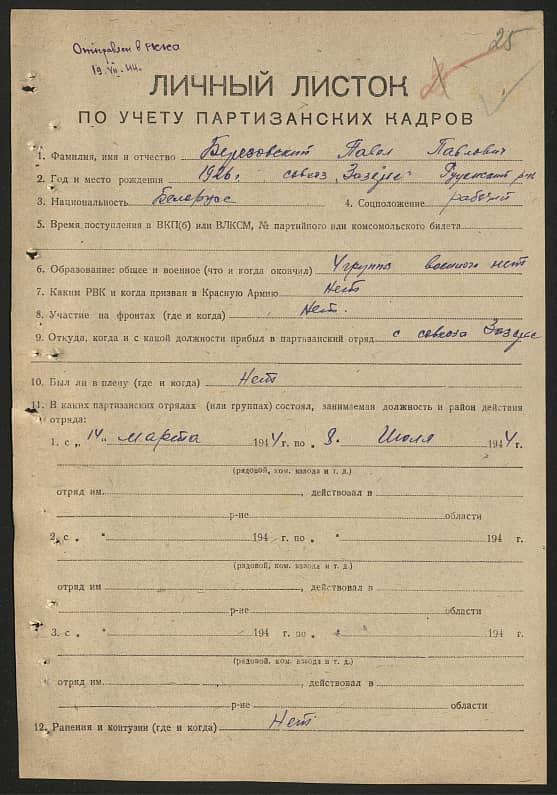 Отправлен в РККА
19.VII-44.
25
ЛИЧНЫЙ ЛИСТОК
ПО УЧЕТУ ПАРТИЗАНСКИХ КАДРОВ
1. Фамилия, имя и отчество Березовский Павел Павлович
2. Год и место рождения 1926 г совхоз "Зазерье" р-н
3. Национальность Беларус 4. Соцположение рабочий
5. Время поступления в ВКП(б) или ВЛКСМ, № партийного или комсомольского билета
6. Образование: общее и военное (что и когда окончил) 4 группы военного нет
7. Каким РВК и когда призван в Красную Армию Нет
8. Участие на фронтах (где и когда) Нет.
9. Откуда, когда и с какой должности прибыл в партизанский отряд с совхоза Зазерье
10. Был ли в плену (где и когда) Нет
11. В каких партизанских отрядах (или группах) состоял, занимаемая должность и район действия
отряда:
1. с „ 14 " марта 1944 г. по „ 3. Июля 1944 г.
(рядовой, ком. взвода и т. д.)
отряд им. , действовал в
р-не области
2. с „ " 194 г. по „ " 194 г.
(рядовой, ком. взвода и т. д.)
отряд им , действовал в
р-не области
3. с „ " 194 г. по „ " 194 г.
(рядовой, ком. взвода и т. д.)
отряд им. , действовал в
р-не области
12. Ранения и контузии (где и когда) Нет